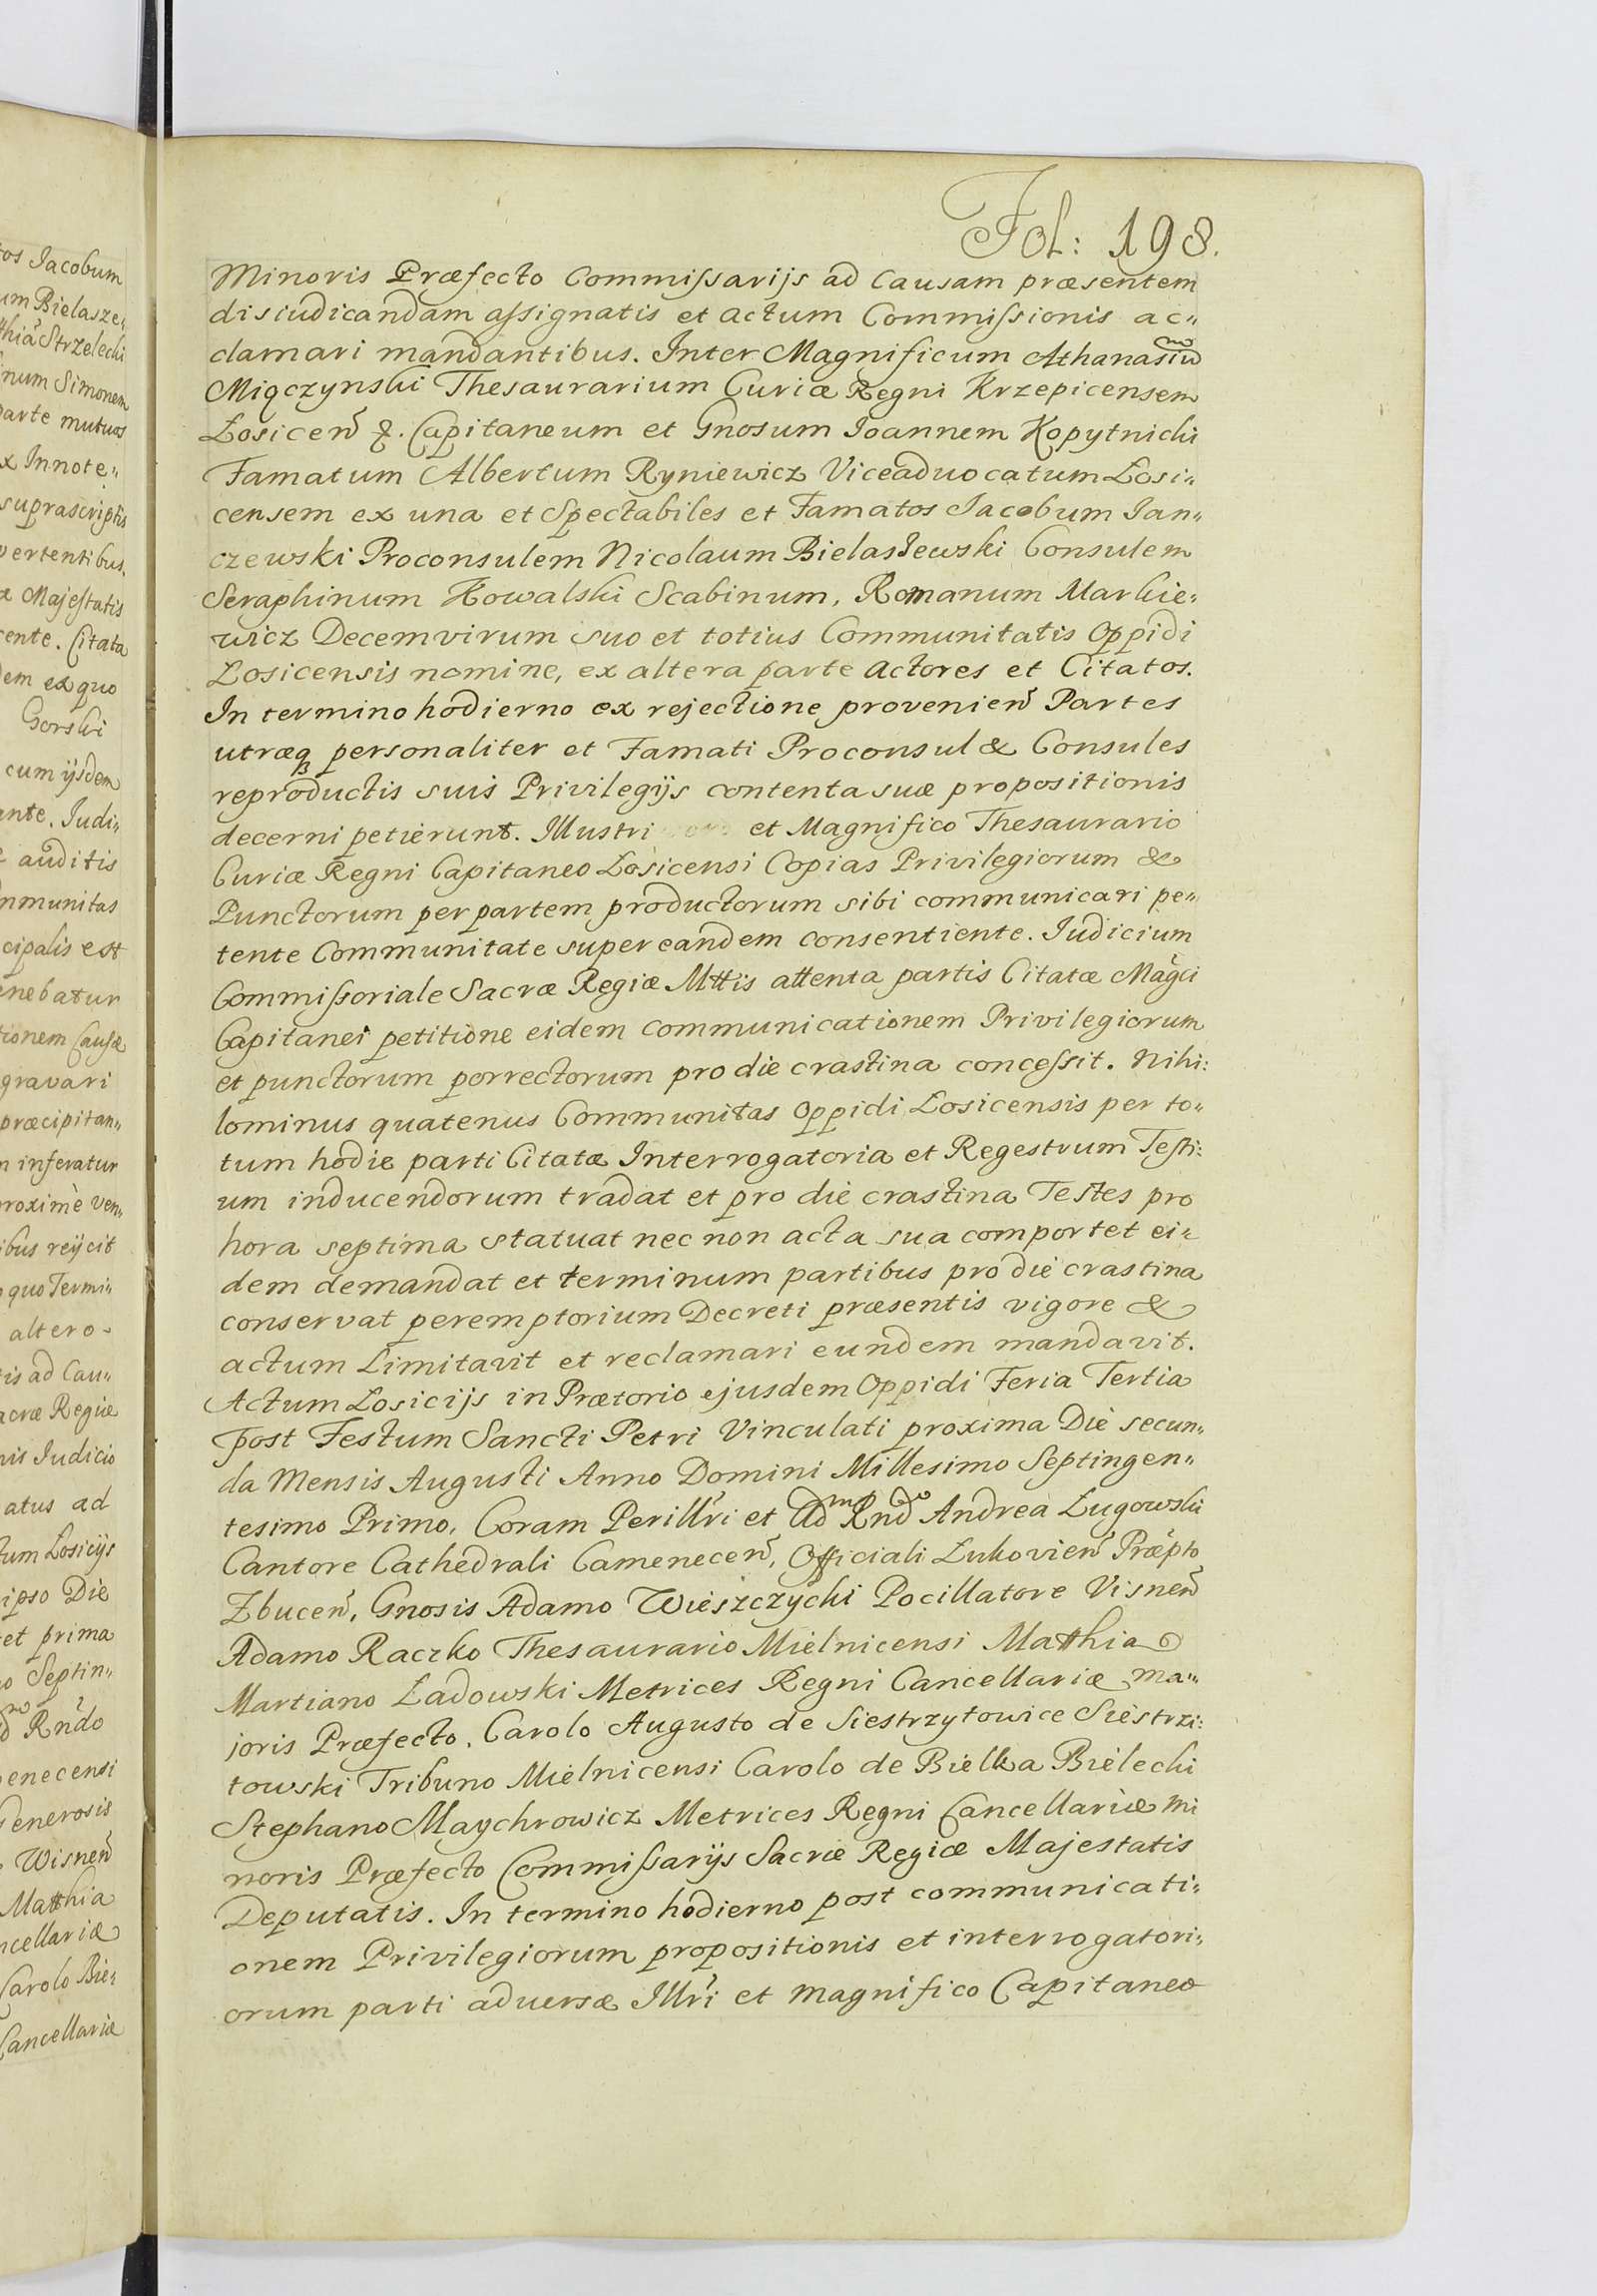 Fol: 198.
Minoris Præfecto Commißarijs ad Causam præsentem
disiudicandam aßignatis et actum Commißionis ac„
clamari mandantibus. Inter Magnificum Athanasiū
Miączynski Thesaurarium Curiæ Regni Krzepicensem
Łosiceñ &. Capitaneum et Gnosum Ioannem Kopytnicki
Famatum Albertum Ryniewicz Viceaduocatum Łosi„
censem ex una et Spectabiles et Famatos Iacobum Ian„
czewski Proconsulem Nicolaum Bielaszewski Consulem
Seraphinum Kowalski Scabinum, Romanum Markie„
wicz Decemvirum suo et totius Communitatis Oppidi
Łosicensis nomine, ex altera parte Actores et Citatos.
In termino hodierno ex rejectione provenieñ Partes
utræqꝫ personaliter et Famati Proconsul & Consules
reproductis suis Privilegijs contenta suæ propositionis
decerni petierunt. Illustri et Magnifico Thesaurario
Curiæ Regni Capitaneo Łosicensi Copias Privilegiorum &
Punctorum per partem productorum sibi communicari pe„
tente Communitate super eandem consentiente. Iudicium
Commißoriale Sacræ Regiæ Mttis attenta partis Citatæ Magci
Capitanei petitione eidem communicationem Privilegiorum
et punctorum porrectorum pro die crastina conceßit. Nihi:
lominus quatenus Communitas Oppidi Łosicensis per to„
tum hodie parti Citatæ Interrogatoria et Regestrum Testi:
um inducendorum tradat et pro die crastina Testes pro
hora septima statuat nec non acta sua comportet ei„
dem demandat et terminum partibus pro die crastina
conservat peremptorium Decreti præsentis vigore &
actum Limitavit et reclamari eundem mandavit.
Actum Łosicijs in Prætorio ejusdem Oppidi Feria Tertia
post Festum Sancti Petri Vinculati proxima Die secun„
da Mensis Augusti Anno Domini Millesimo Septingen„
tesimo Primo, Coram Perillri et Adm Rndo Andrea Ługowski
Cantore Cathedrali Cameneceñ, Officiali Łukovieñ Præpto
Zbuceñ, Gnosis Adamo Wieszczycki Pocillatore Visneñ
Adamo Raczko Thesaurario Mielnicensi Matthia
Martiano Ładowski Metrices Regni Cancellariæ ma„
joris Præfecto, Carolo Augusto de Siestrzytowice Siestrzi:
towski Tribuno Mielnicensi Carolo de Bielka Bielecki
Stephano Maychrowicz Metrices Regni Cancellariæ mi
noris Præfecto Commißarijs Sacræ Regiæ Majestatis
Deputatis. In termino hodierno post communicati„
onem Privilegiorum propositionis et interrogatori„
orum parti aduersæ Illri et Magnifico Capitaneo
tos Iacobum
um Bielasze„
thiã Strzelecki
num Simonem
parte mutuos
x Innote„
suprascriptis
vertentibus.
æ Majestatis
cente. Citata
dem ex quo
Gorski
cum ijsdem
ante. Iudi„
auditis
mmunitas
cipalis est
enebatur
tionem Causæ
gravari
præcipitan„
n inferatur
proximè ven„
ibus reijcit
quo Termi„
altero-
tis ad Cau„
acræ Regiæ
nis Iudicio
atus ad
tum Łosicijs
ipso Die
et prima
o Septin„
d Rñdo
enecensi
Generosis
Wisneñ
Matthia
ncellariæ
Carolo Bie„
Cancellariæ